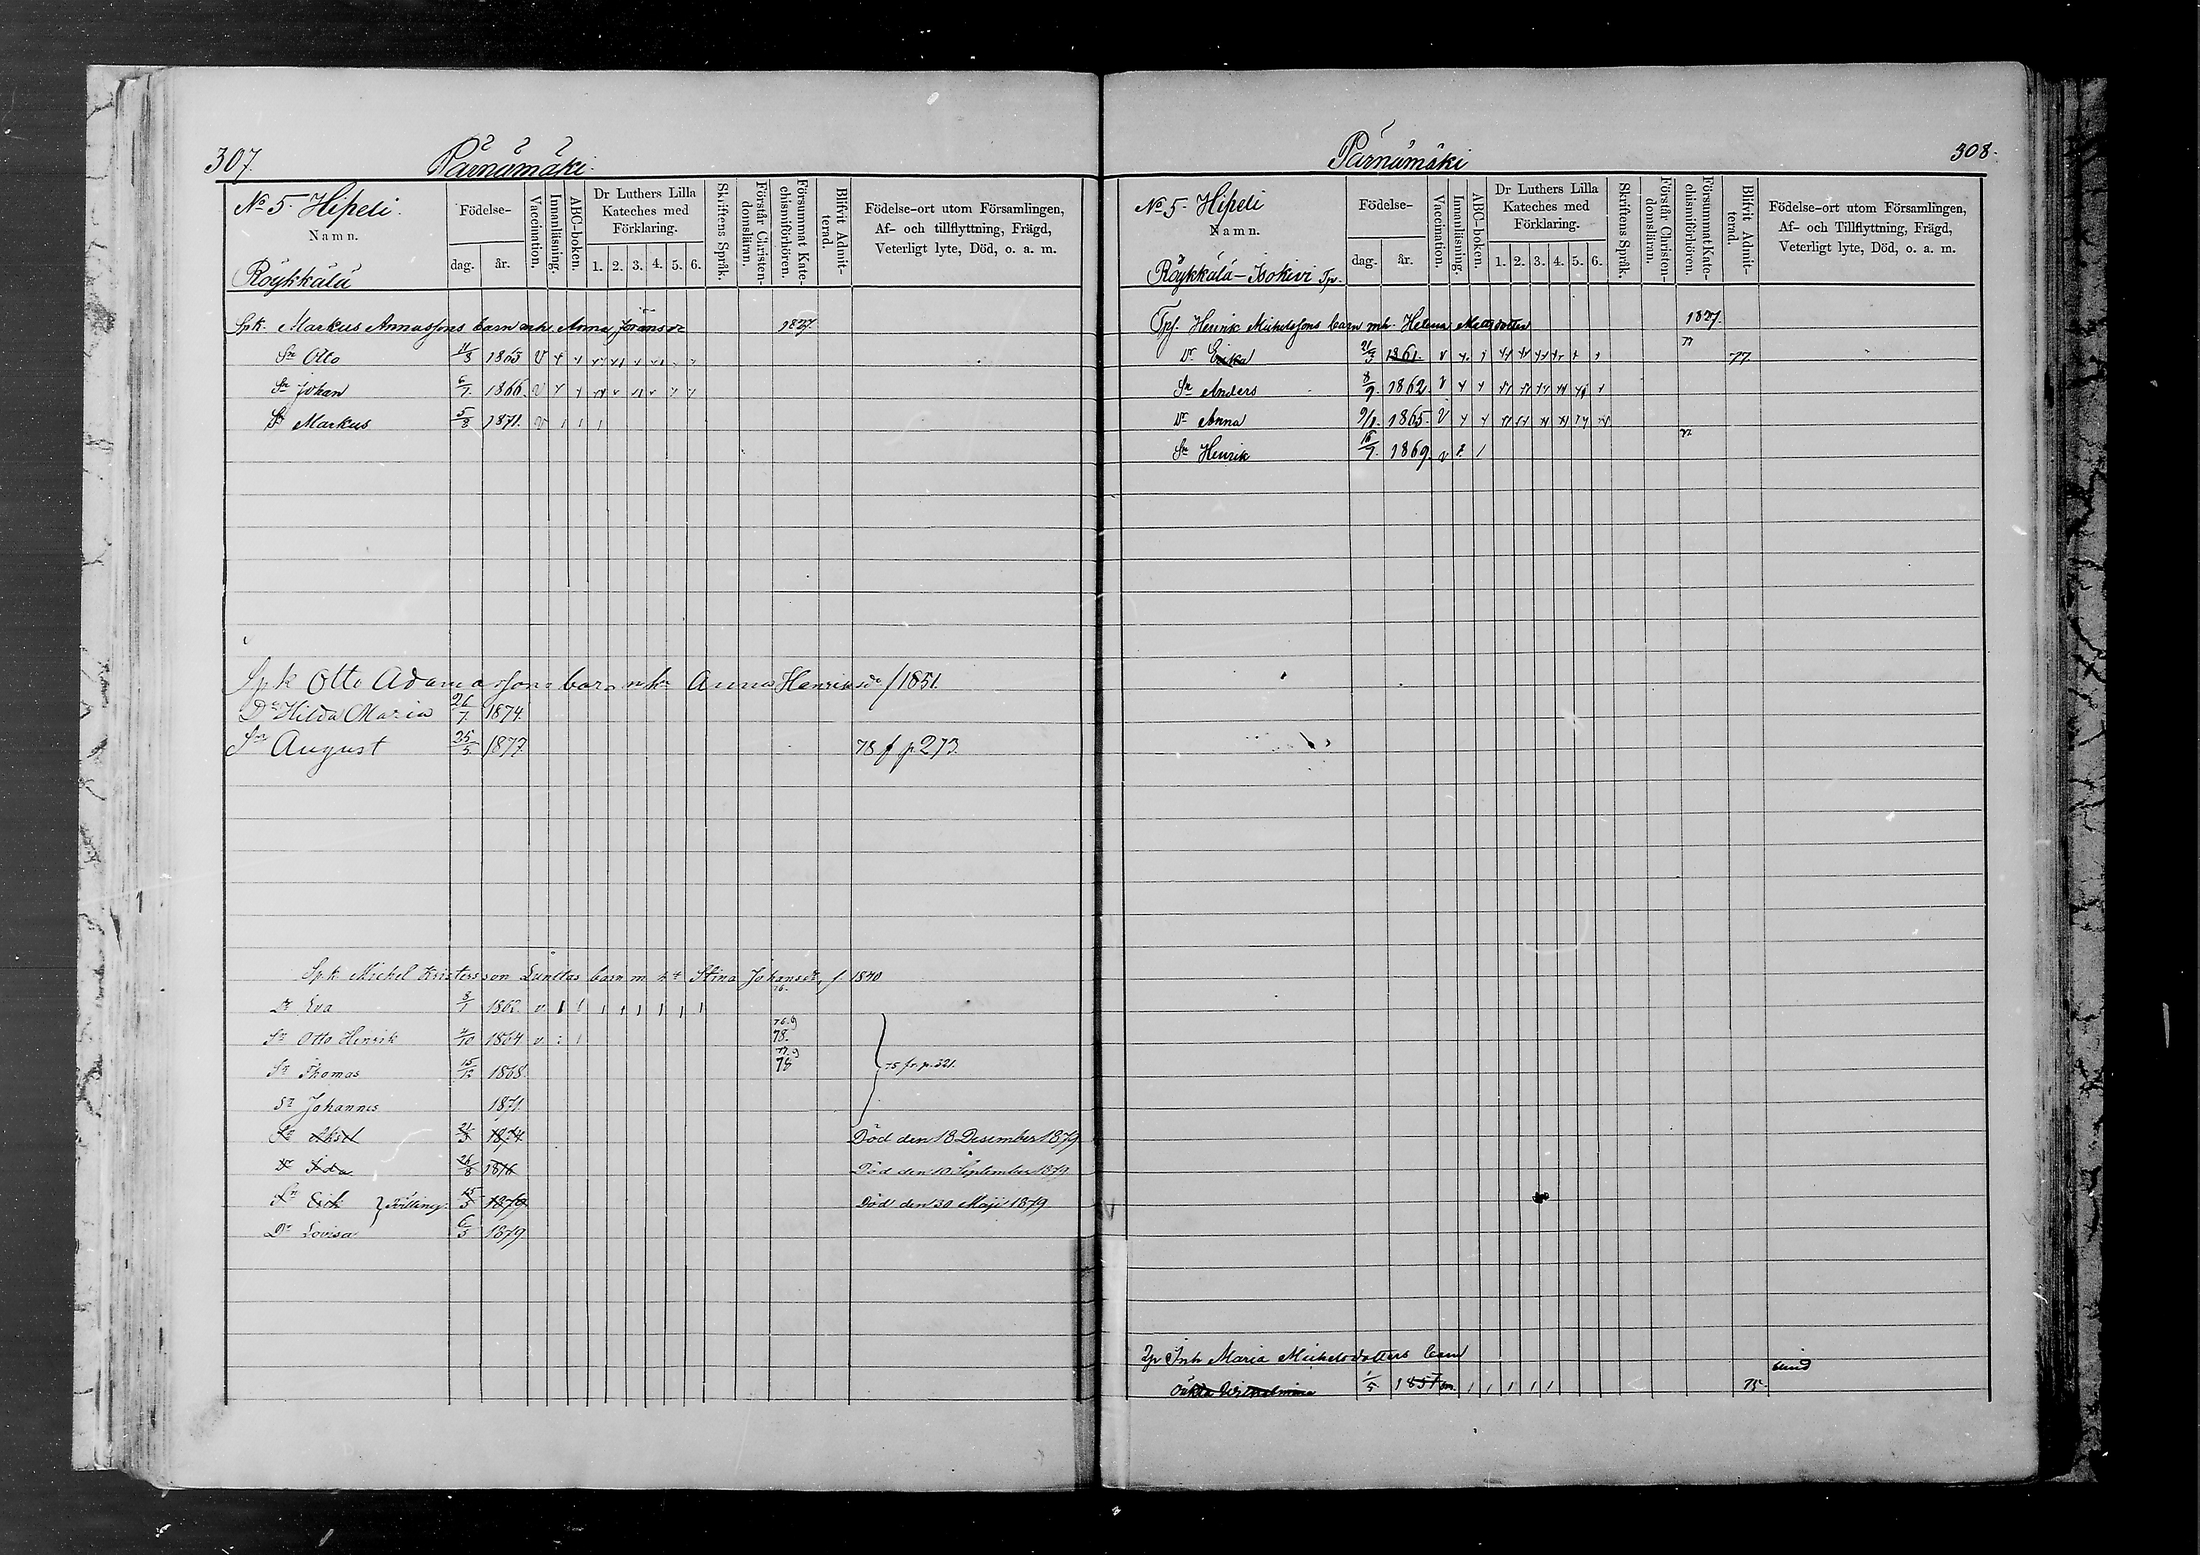 307.
Pärnämäki.
No 5. Hipeli.
Namn.
Röykkälä
Födelse-
dag. år.
Vaccination.
Innanläsning.
ABC-boken.
Dr Luthers Lilla
Kateches med
Förklaring.
1. 2. 3. 4. 5. 6.
Skriftens Språk.
Förstår Christen-
domsläran.
Försummat Kate-
chismiförhören.
Blifvit Admit-
terad.
Födelse-ort utom Församlingen,
Af- och tillflyttning, Frägd,
Veterligt lyte, Död, o. a. m.
Spk. Markus barn mh. Anna 1827.
Sn Otto 11/3 1863 v
Sn Johan 6/7. 1866. v
Sn Markus 5/8 1871. v
Spk Otto Adamssons barn mhu Anna Henriksdr f 1851.
Dr Hilda Maria 26/7 1874.
Sn August 25/5 1877. 78 f p 273.
Spk Mickel Kristersson barn m h Stina Johansdr, f. 1840
Dr Eva 3/1 1862. v.
Sn Otto Henrik 4/10 1864 v. 78.
Sn Thomas 15/12 1868. 78 75 fr. p. 321.
Sn Johannes 1871.
Sn Aksel 21/3 1874. Död den 18 Desember 1879
Dr Ida 26/8 1876 Död den 10 September 1879
Sn Erik } Tvilling. 15/5 1879 Död den 30 Maji 1879
Dr Lovisa 6/5 1879
Pärnämäki
308.
No 5. Hipeli
Namn.
Röykkälä - Isokivi Tp.
Födelse-
dag. år.
Vaccination.
Innanläsning.
ABC-boken.
Dr Luthers Lilla
Kateches med
Förklaring.
1. 2. 3. 4. 5. 6.
Skriftens Språk.
Förstår Christen-
domsläran.
Försummat Kate-
chismiförhören.
Blifvit Admit-
terad.
Födelse-ort utom Församlingen,
Af- och Tillflyttning, Frägd,
Veterligt lyte, Död, o. a. m.
Tpf. Henrik Michelssons barn mh. Helena Mattsdotter 1827.
Dr Erika 21/3 1861. v 77 77
Sn Anders 8/9. 1862. v
Dr Anna 9/1. 1865. v
Sn Henrik 16/7. 1869. v
Tp Inh Maria Michelsdotters barn
Wilhelmina 1/5 1857 75 blind